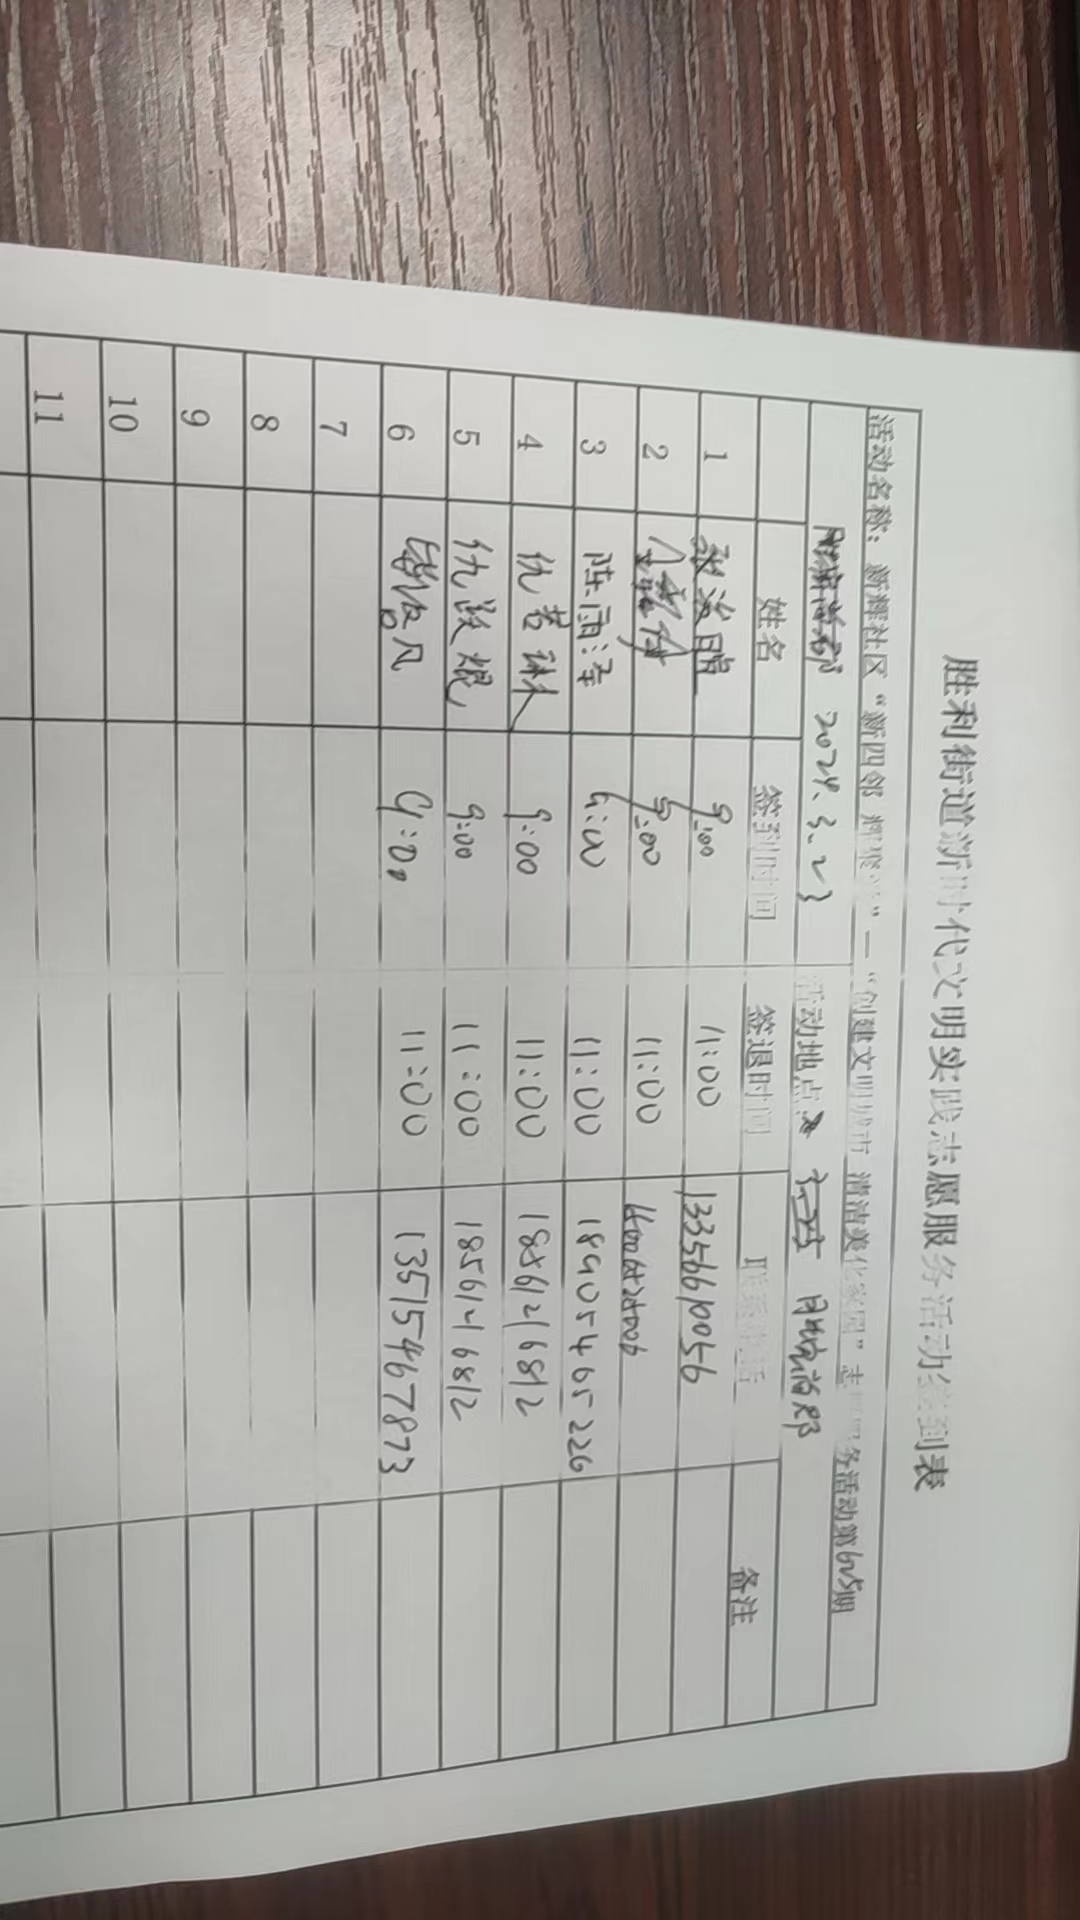 胜利街道新时代文明实践志愿服务活动签到表
活动名称：新辉社区“新四邻 辉聚”—“创建文明城市 清洁美化家园”志愿服务活动第625期
2024.3.23 活动地点
姓名 签到时间 签退时间 联系电话 备注
1 9:00 11:00 13356610056
2 9:00 11:00
3 陈雨泽 9:00 11:00 18905465226
4 仇若琳 9:00 11:00 18561216812
5 仇 9:00 11:00 18561216812
6 9:00 11:00 13515467873
7
8
9
10
11